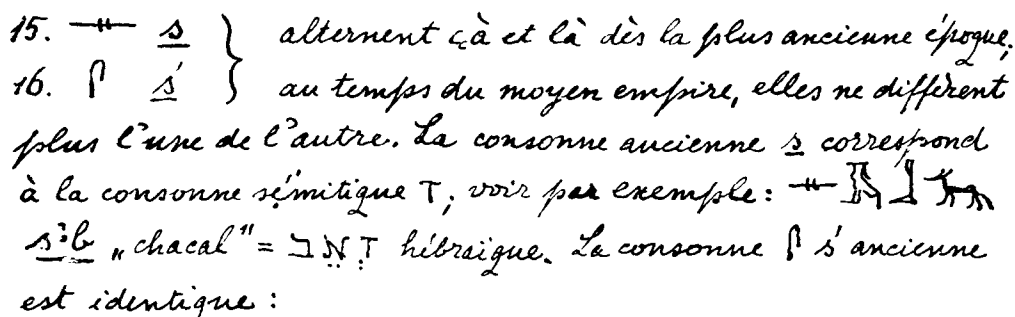 15. 𓊃 s } alternent çà et là dès la plus ancienne époque;
16. 𓋴 ś } au temps du moyen empire, elles ne diffèrent
plus l'une de l'autre. La consonne ancienne s correspond
à la consonne sémitique ז; voir par exemple: 𓊃𓄿𓃀𓃥
sꜣb „chacal" = זְאֵב hébraïque. La consonne 𓋴 ś ancienne
est identique: